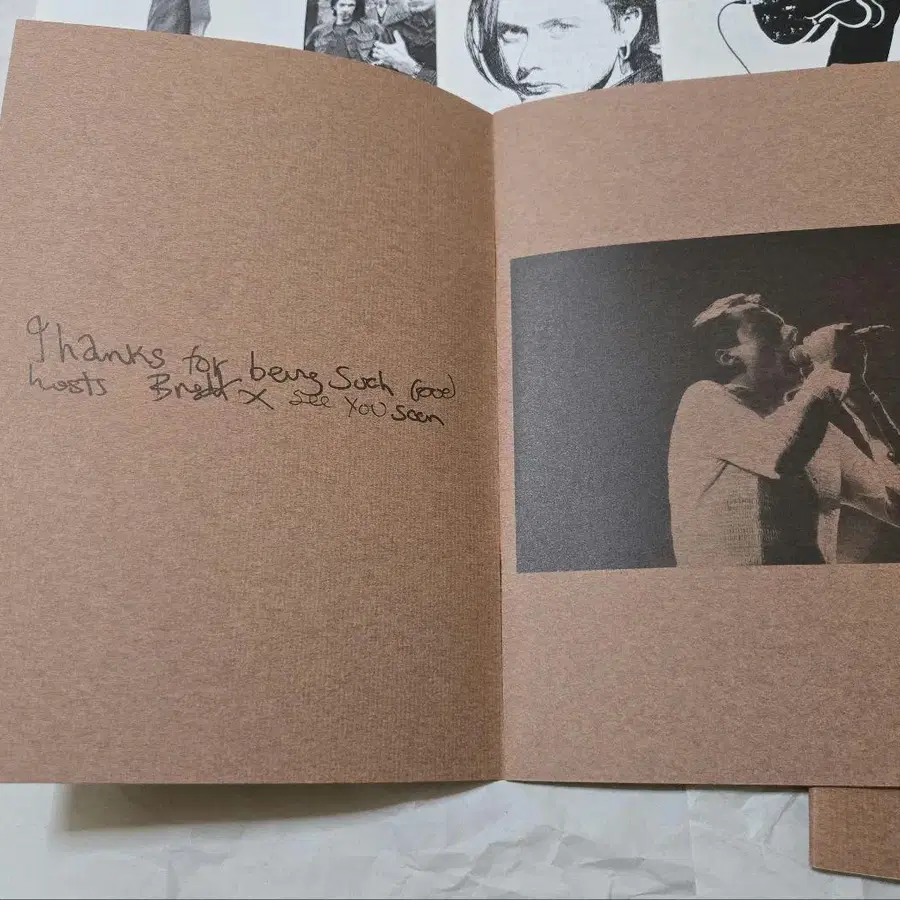 Thanks for being such good
hosts Brett X see you soon